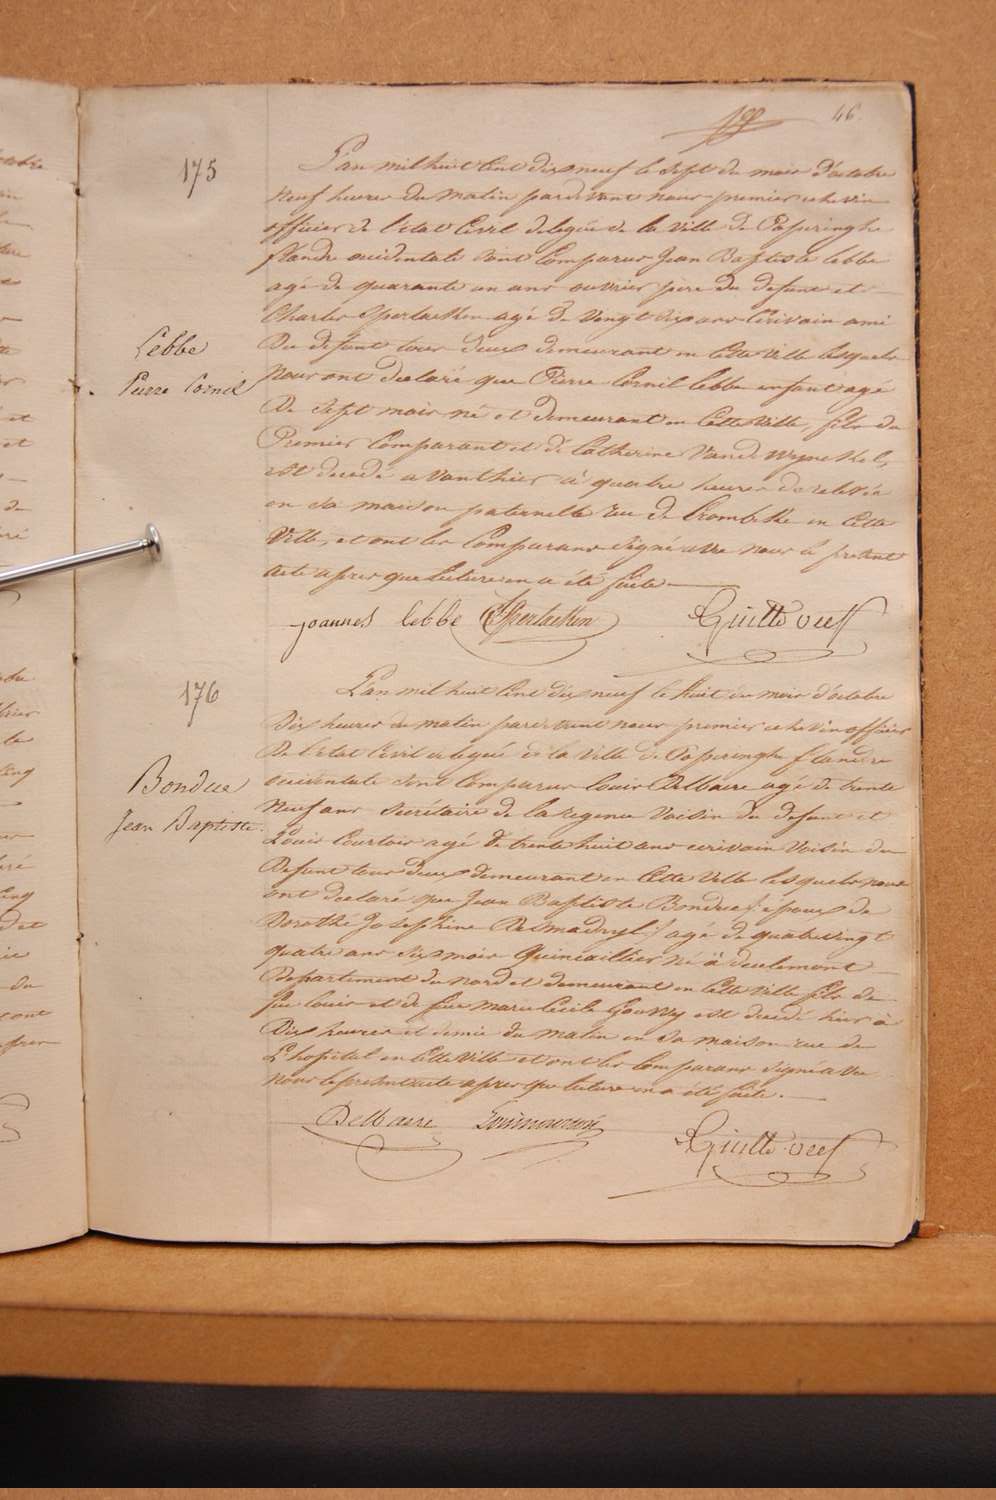 46
175
L'an mil huit Cent dix neuf le Sept du mois d'octobre
neuf heures du Matin pardevant nous premier echevin
officier de l'état Civil delegué de la ville de Poperinghe
flandre occidentale Sont Comparus Jean Baptiste lebbe
agé de quarante un ans ouvrier pere du defunt et
Charles Sperlaeken agé de Vingt dix ans Ecrivain ami
Du defunt tous deux demeurant en Cette Ville lesquels
Lebbe
Pierre Cornil
Nous ont declaré que Pierre Cornil Lebbe enfant agé
De Sept mois né et demeurant en Cette Ville, fils du
Premier Comparant et de Catherine Vande Wynckel,
est decedé avanthier à quatre heures de relevée
en Sa maison paternelle rue de Crombeke en Cette
Ville, et ont les Comparans Signé avec nous le present
acte apres que lecture en a été faite
joannes lebbe CSperlaeken
176
L'an mil huit Cent dix neuf le huit du mois d'octobre
Dix heures du matin pardevant nous premier echevin officier
De l'etat Civil delegué de la Ville de Poperinghe flandre
occidentale Sont Comparus Louis Delbaere agé de trente
Bondue
Jean Baptiste
Neuf ans Secrétaire de la regence Voisin du defunt et
Louis Courtois agé de trente huit ans ecrivain Voisin du
Defunt tous deux demeurant en Cette Ville lesquels nous
ont declaré que Jean Baptiste Bondue (: époux de
Dorothé Josephine Desmadryl :) agé de quatrevingt
quatre ans Six mois Quincaillier né à deulemont
Departement du nord et demeurant en Cette Ville fils de
feu Louis et de feue Marie Cecile est decedé hier à
Dix heures et demie du matin en Sa maison rue de
L'hopital en Cette Ville et ont les Comparans Signé avec
nous le present acte apres que lecture en a été faite.
Delbaere